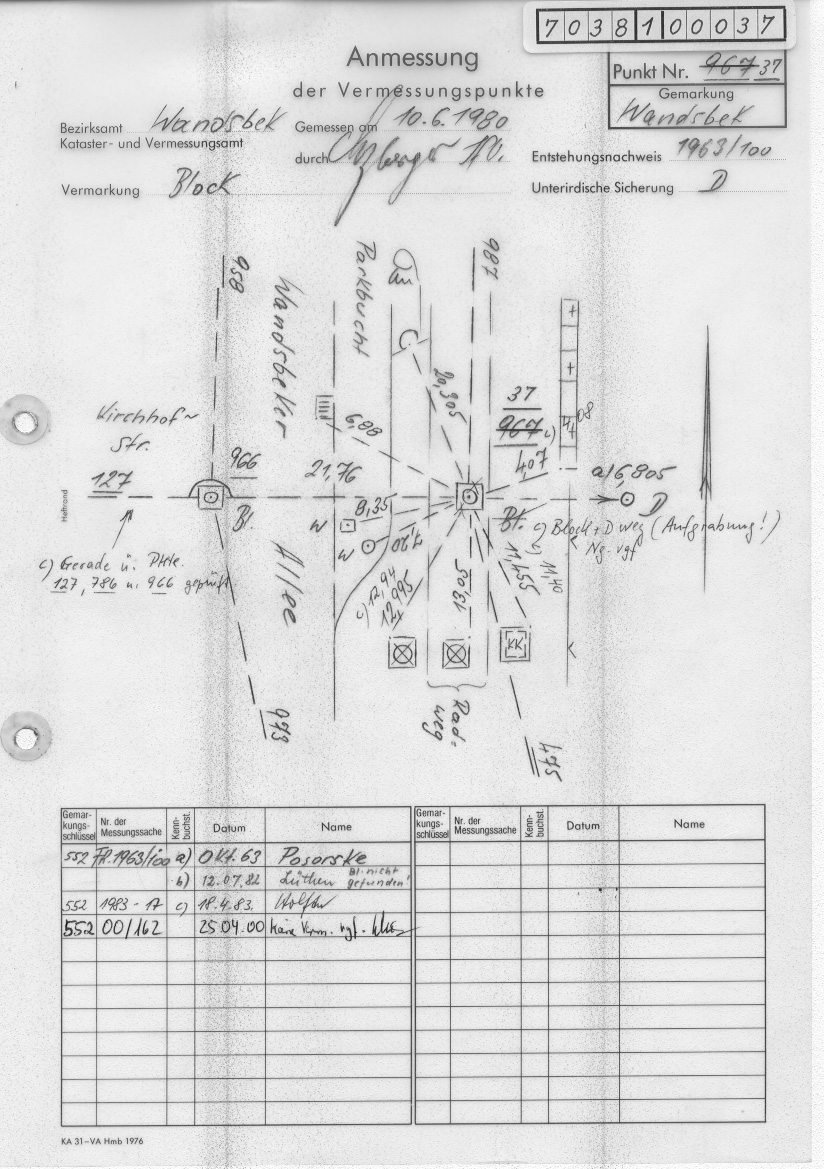 7038100037
Anmessung
der Vermessungspunkte
Punkt Nr. 967 37
Gemarkung
Wandsbek
Bezirksamt Wandsbek
Kataster- und Vermessungsamt
Gemessen am 10.6.1980
durch
Entstehungsnachweis 1963/100
Vermarkung Block
Unterirdische Sicherung D
958
Wandsbeker
Allee
Parkbucht
987
20,305
37
967 c)
4,08
4,07
6,88
Kirchhof~
str.
127
966
21,76
a) 6,805
D
Bl.
8,35
W
W
7,20
Bl.
c) Block + D weg (Aufgrabung!)
Ng. vgf
c) Gerade ü. Pkte.
127, 786 u. 966 geprüft
c) 12,94
12,995
13,05
11,455
c) 11,40
KK
Rad-
weg
973
475
Heftrand
Gemar-
kungs-
schlüssel
Nr. der
Messungssache
Kenn-
buchst.
Datum
Name
Gemar-
kungs-
schlüssel
Nr. der
Messungssache
Kenn-
buchst.
Datum
Name
552 Fl. 1963/100 a) Okt. 63 Posorske
b) 12.07.82 Lüthen Bl. nicht
gefunden!
552 1983-17 c) 18.4.83.
552 00/162 25.04.00 keine Verm. vgf.
KA 31–VA Hmb 1976